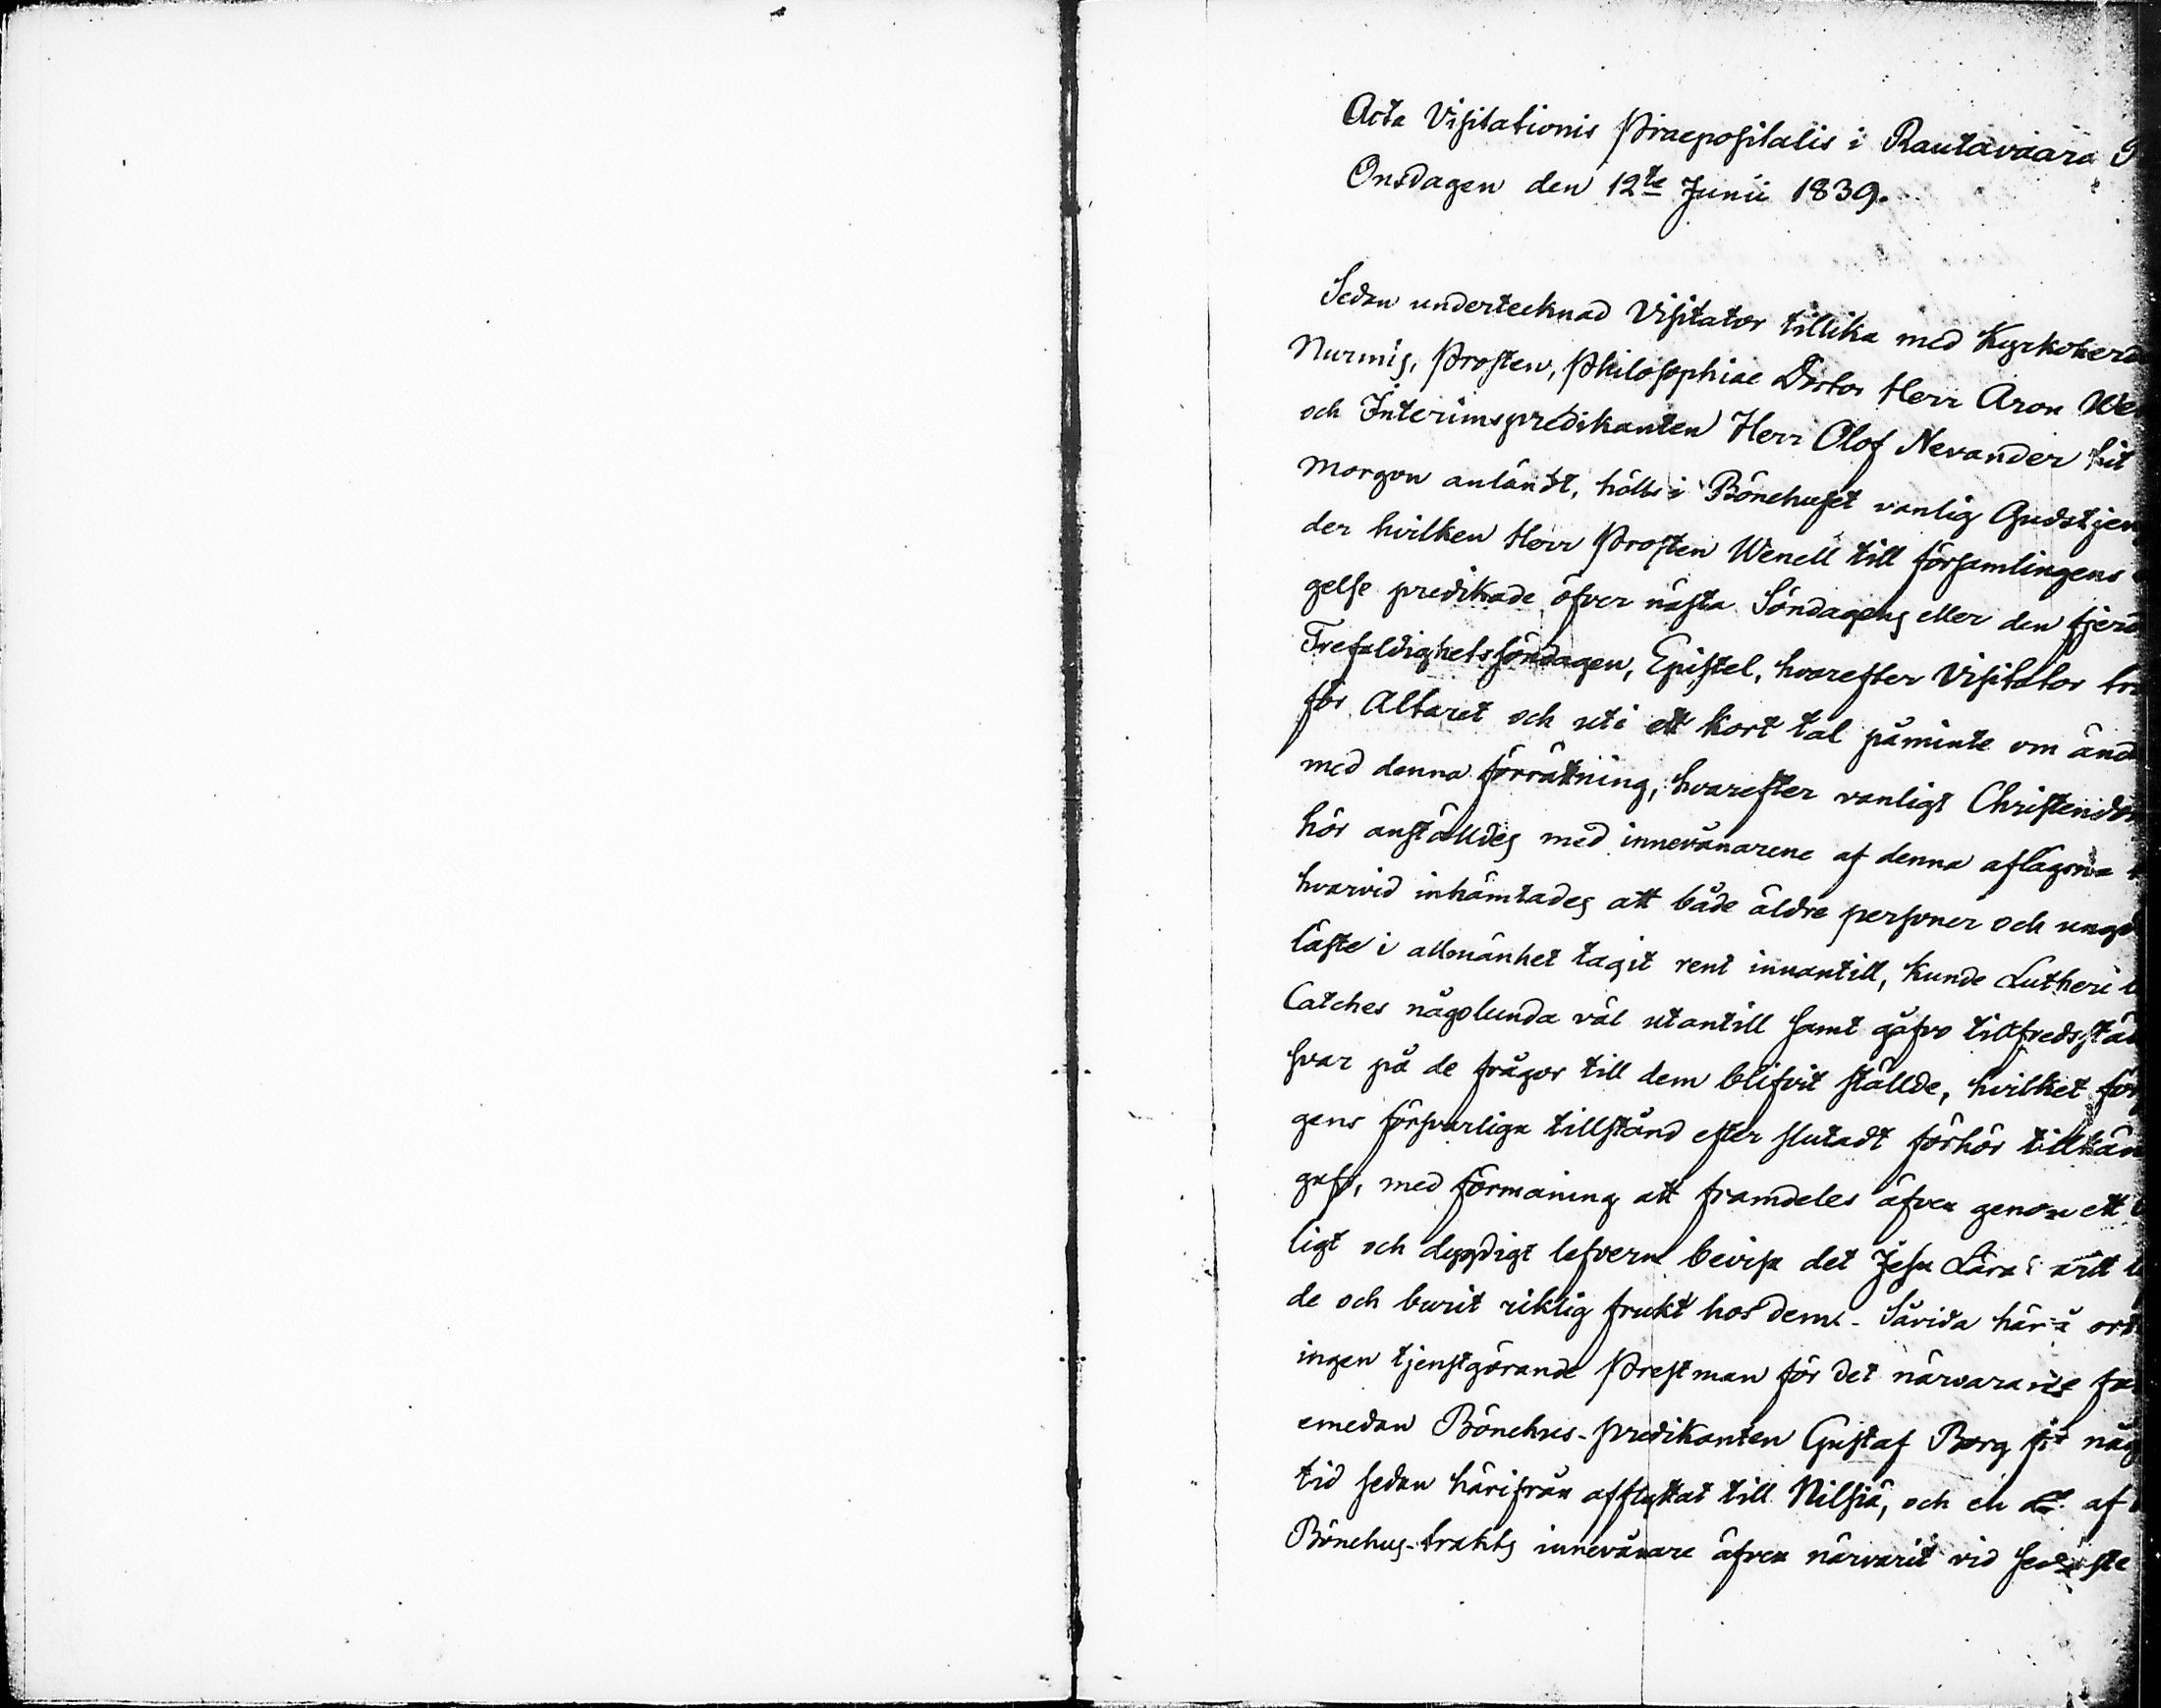 Acta Visitationis Praepositalis i Rautavaara
Onsdagen den 12te Junii 1839.
Sedan undertecknad Visitator tillika med Kyrkoherd
Nurmis, Prosten, Philosophiae Doctor Herr Aron We
och Interimspredikanten Herr Olof Nevander hit
morgon anländt, hölls i Bönehuset vanlig Gudstjen
der hvilken Herr Prosten Wenell till församlingens
gelse predikade öfver nästa Söndagens eller den fjerd
Trefaldighetssöndagen, Epistel, hvarefter Visitator tr
för Altaret och uti ett kort tal påminte om änd
med denna förrättning, hvarefter vanligt Christendom
hör anställdes med innevånarene af denna aflägsna
hvarvid inhämtades att både äldre personer och ungd
läste i allmänhet tagit rent innantill, kunde Lutheri
Catches någolunda väl utantill samt gåfvo tillfredsstäl
svar på de frågor till dem blifvit ställde, hvilket för
gens försvarliga tillstånd efter slutadt förhör tillkän
gafs, med förmaning att framdeles äfven genom ett
ligt och dygdigt lefverne bevisa det Jesu Lära
de och burit riklig frukt hos dem. Såvida här å ort
ingen tjenstgörande Prestman för det närvarande
emedan Bönehus-predikanten Gustaf Borg för någ
tid sedan härifrån afflyttat till Nilsiä, och en del af
Bönehus-trakts innevånare äfven närvarit vid sednaste